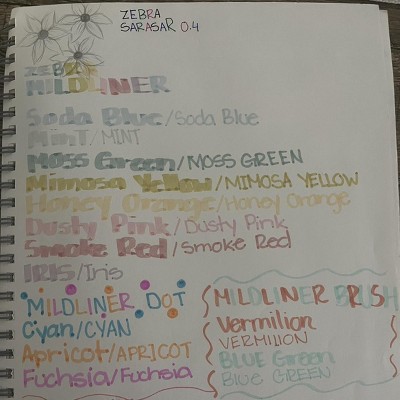 ZEBRA
SARASAR 0.4
ZEBRA
MILDLINER
Soda Blue/Soda Blue
MinT/MINT
MOSS Green/MOSS GREEN
Mimosa Yellow/MIMOSA YELLOW
Honey Orange/Honey Orange
Dusty Pink/Dusty Pink
Smoke Red/Smoke Red
IRIS/Iris
MILDLINER DOT
Cyan/CYAN
Apricot/APRICOT
Fuchsia/Fuchsia
MILDLINER BRUSH
Vermilion
VERMILION
BLUE Green
BLUE GREEN